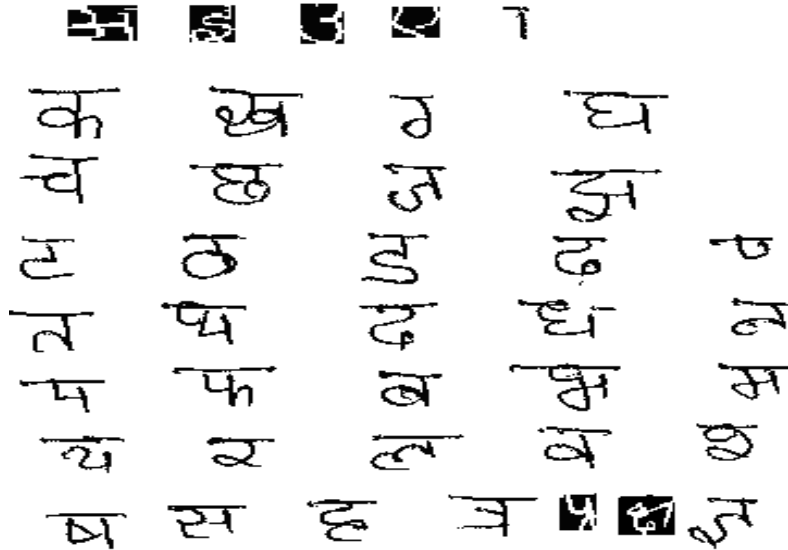 अ इ उ
क ख ग घ
च छ ज झ
ट ठ ड ढ
त थ द ध न
प फ ब भ म
य र ल व श
ष स ह त्र क्ष ज्ञ